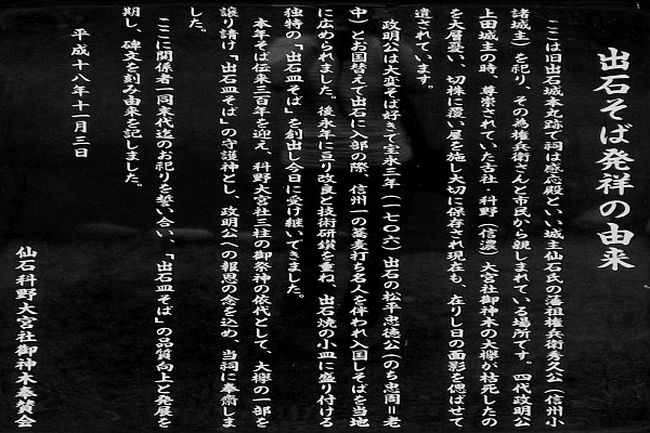 出石そば発祥の由来
ここは旧出石城本丸跡で祠は感応殿といい、城主仙石氏の藩祖権兵衛秀久公(信州小
諸城主)を祀り、その為権兵衛さんと市民から親しまれている場所です。四代政明公
上田城主の時、尊崇されていた古社・科野(信濃)大宮社御神木の大欅が枯死したの
を大層憂い、切株に覆い屋を施し大切に保存され現在も、在りし日の面影を偲ばせて
遺されています。
政明公は大変そば好きで宝永三年(一七〇六)出石の松平忠徳公(のち忠周=老
中)とお国替えで出石に入部の際、信州一の蕎麦打ち名人を伴われ入国しそばを当地
に広められました。後永年に亘り改良と技術研鑚を重ね、出石焼の小皿に盛り付ける
独特の「出石皿そば」を創出し今日に受け継いできました。
本年そば伝来三百年を迎え、科野大宮社三柱の御祭神の依代として、大欅の一部を
譲り請け「出石皿そば」の守護神とし、政明公への報恩の念を込め、当祠に奉齋しま
した。
ここに関係者一同末代迄のお祀りを誓い合い、「出石皿そば」の品質向上と発展を
期し、碑文を刻み由来を記しました。
平成十八年十一月三日
仙石科野大宮社御神木奉賛会